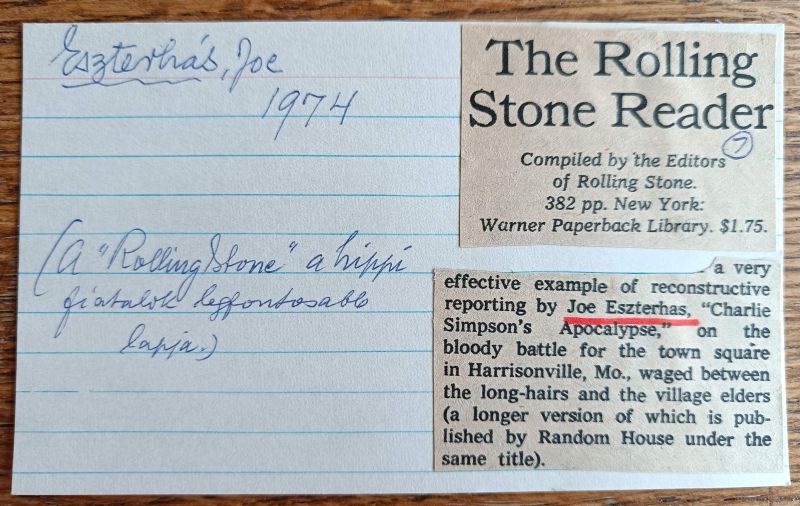 Eszterhás, Joe
1974
(A "Rolling Stone" a hippi
fiatalok legfontosabb
lapja.)
The Rolling
Stone Reader
7
Compiled by the Editors
of Rolling Stone.
382 pp. New York:
Warner Paperback Library. $1.75.
a very
effective example of reconstructive
reporting by Joe Eszterhas, "Charlie
Simpson's Apocalypse," on the
bloody battle for the town square
in Harrisonville, Mo., waged between
the long-hairs and the village elders
(a longer version of which is pub-
lished by Random House under the
same title).